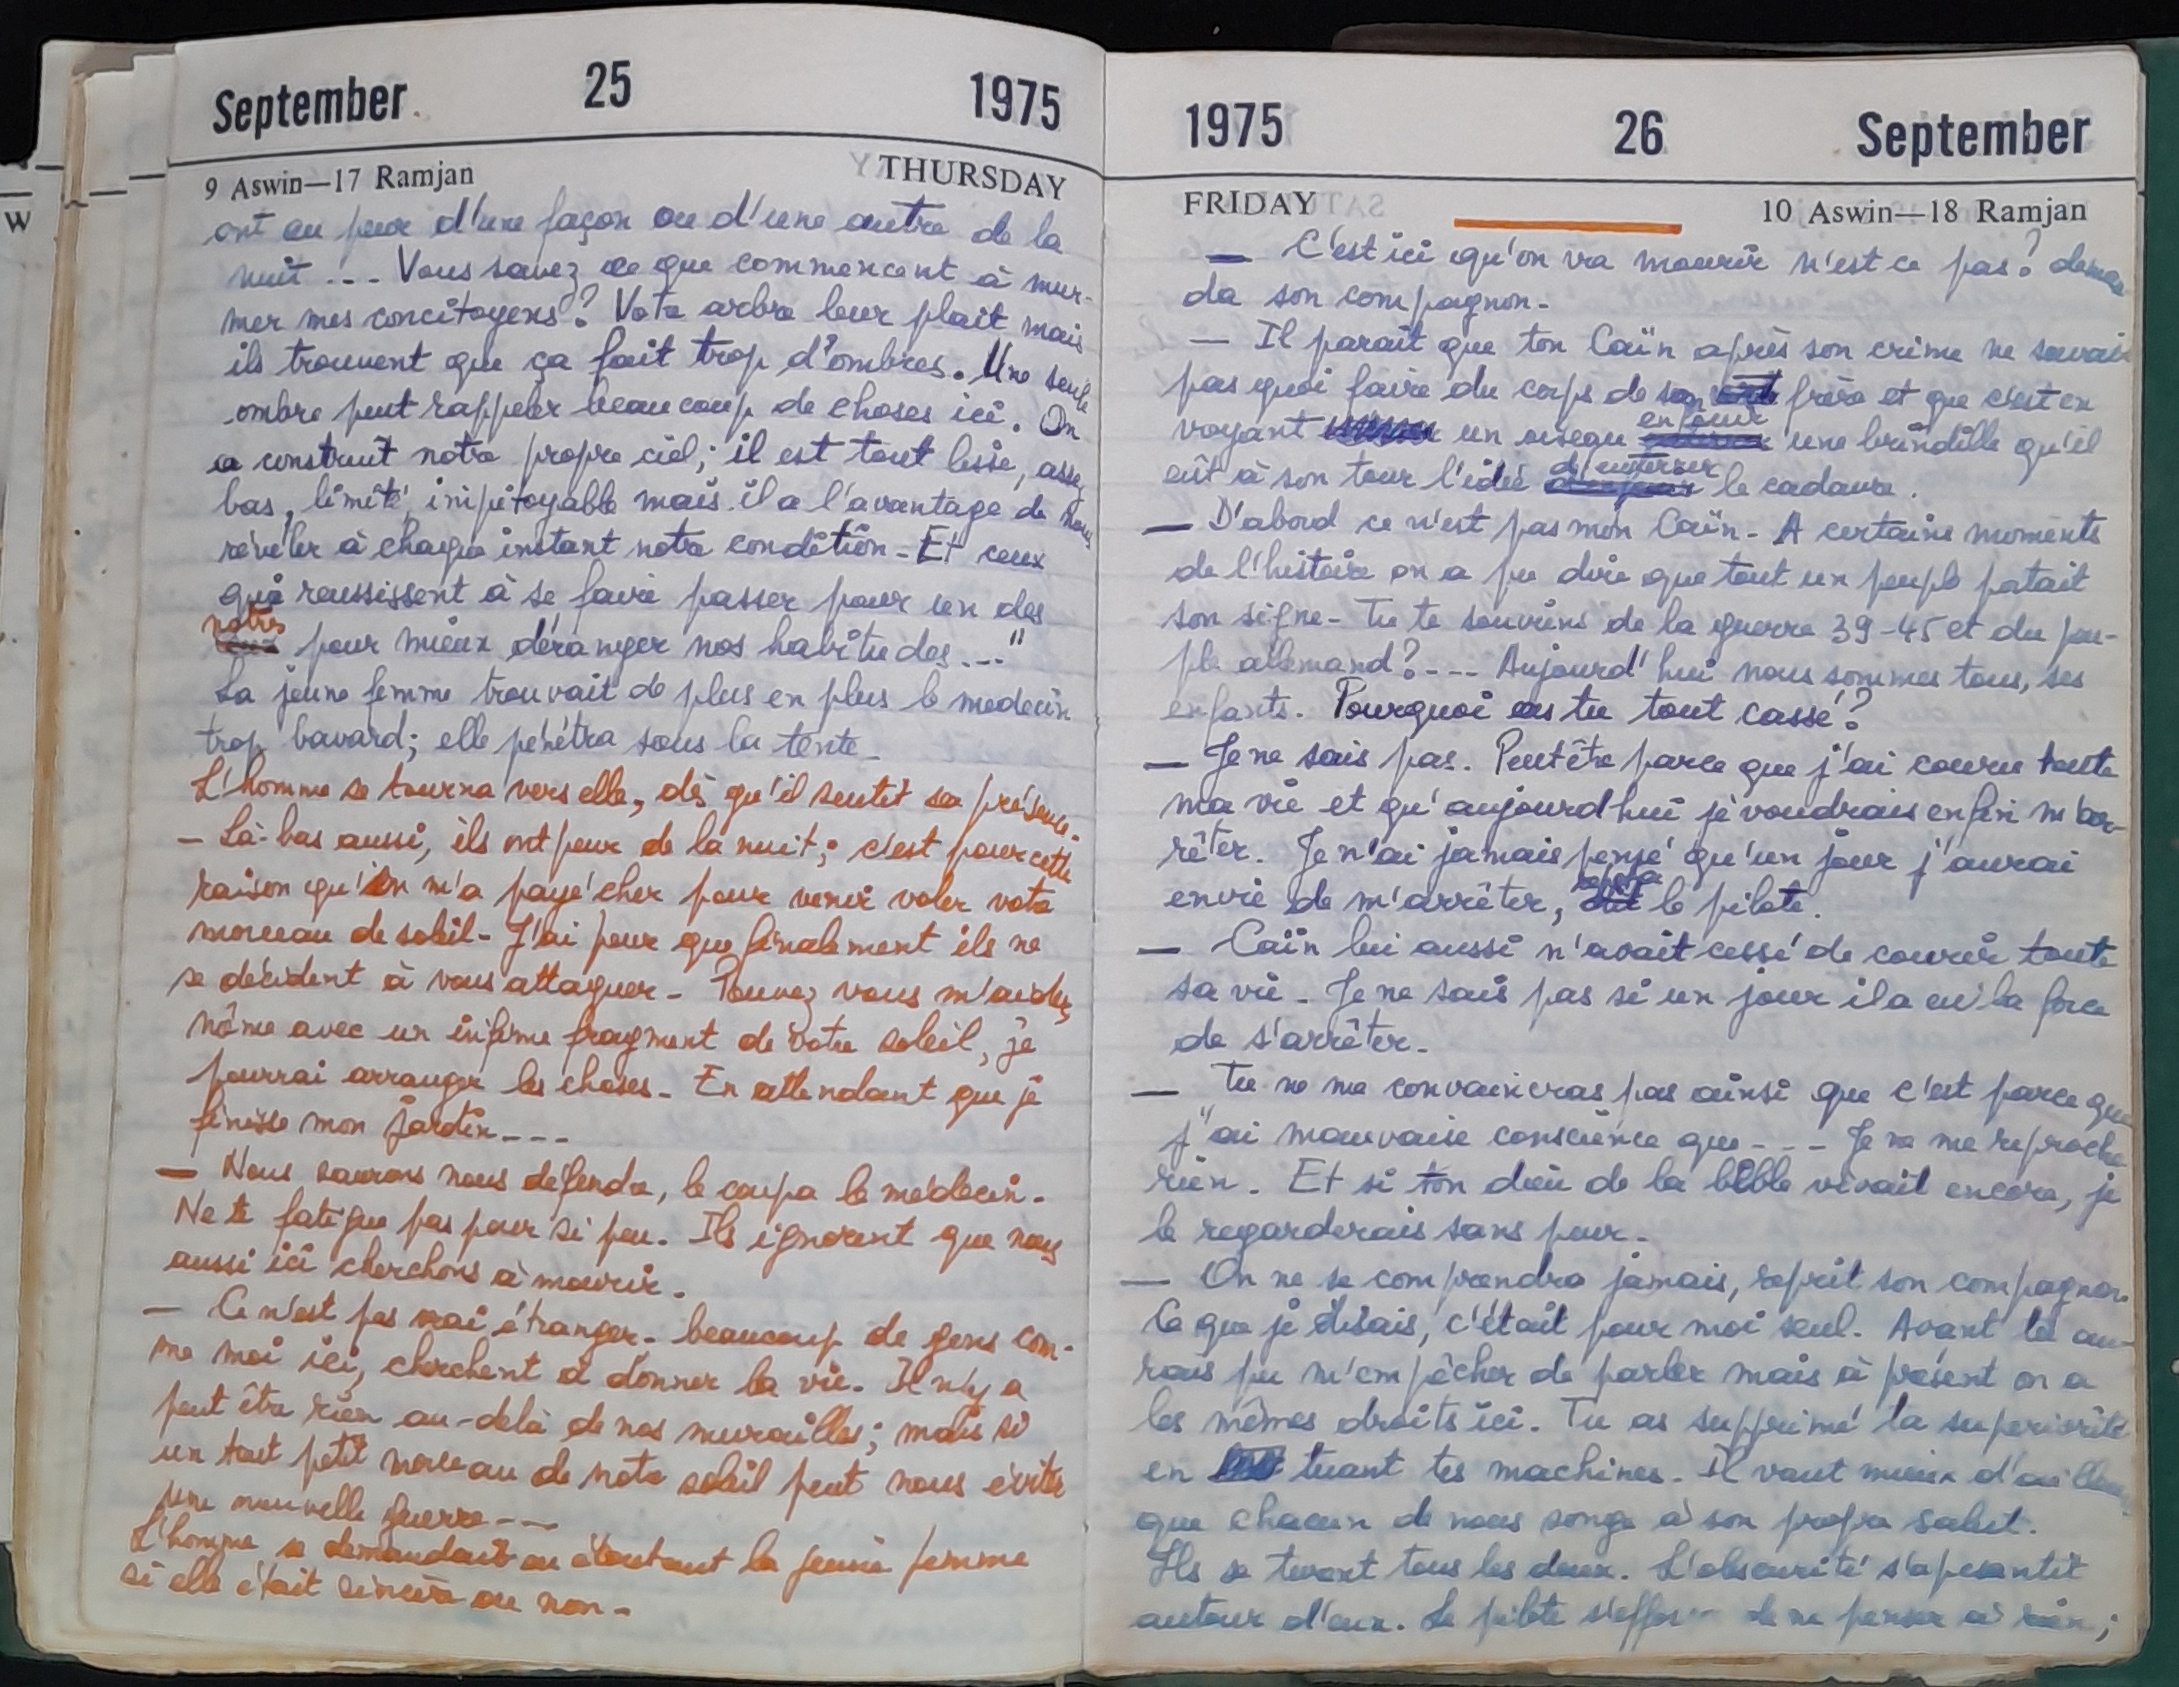 September 25 1975
9 Aswin—17 Ramjan THURSDAY
ont eu peur d'une façon ou d'une autre de la
nuit ... Vous savez ce que commencent à mur-
mer mes concitoyens? Votre arbre leur plait mais
ils trouvent que ça fait trop d'ombres. Une seule
ombre peut rappeler beaucoup de choses ici. On
a construit notre propre ciel; il est tout lisse, assez
bas, limité, impitoyable mais il a l'avantage de nous
révéler à chaque instant notre condition - Et ceux
qui reussissent à se faire passer pour un des
notres
pour mieux déranger nos habitudes ..."
La jeune femme trouvait de plus en plus le medecin
trop bavard; elle pénétra sous la tente -
L'homme se tourna vers elle, dès qu'il sentit sa présence.
- Là-bas aussi, ils ont peur de la nuit; c'est pour cette
raison qu'on m'a payé cher pour venir voler votre
morceau de soleil - J'ai peur que finalement ils ne
se décident à vous attaquer - Pouvez vous m'aider,
même avec un infime fragment de votre soleil, je
pourrai arranger les choses - En attendant que je
finisse mon jardin ---
- Nous saurons nous défendre, le coupa le médecin -
Ne te fatigue pas pour si peu. Ils ignorent que nous
aussi ici cherchons à mourir.
- Ce n'est pas vrai étranger - beaucoup de gens com-
me moi ici, cherchent à donner la vie. Il n'y a
peut être rien au-delà de nos murailles; mais si
un tout petit morceau de notre soleil peut nous éviter
une nouvelle guerre ---
L'homme se demandait en écoutant la jeune femme
si elle était sincère ou non -
1975 26 September
FRIDAY 10 Aswin—18 Ramjan
— C'est ici qu'on va mourir n'est ce pas? deman
da son compagnon -
— Il parait que ton Caïn après son crime ne savait
pas quoi faire du corps de son frère et que c'est en
enfouir
voyant un oiseau une brindille qu'il
d'enterrer
eût à son tour l'idée le cadavre.
— D'abord ce n'est pas mon Caïn - A certains moments
de l'histoire on a pu dire que tout un peuple portait
son signe - Tu te souviens de la guerre 39-45 et du peu-
ple allemand? --- Aujourd'hui nous sommes tous, ses
enfants. Pourquoi as tu tout cassé?
— Je ne sais pas. Peut être parce que j'ai couru toute
ma vie et qu'aujourdhui je voudrais enfin m'ar-
rêter. Je n'ai jamais pensé qu'un jour j'aurai
envie de m'arrêter, le pilote.
— Caïn lui aussi n'avait cessé de courir toute
sa vie - Je ne sais pas si un jour il a eu la force
de s'arrêter -
— Tu ne me convaincras pas ainsi que c'est parce que
j'ai mauvaise conscience que --- Je ne me reproche
rien. Et si ton dieu de la bible vivait encore, je
le regarderais sans peur -
— On ne se comprendra jamais, reprit son compagnon.
Ce que je disais, c'était pour moi seul. Avant tu au-
rais pu m'empêcher de parler mais à présent on a
les mêmes droits ici. Tu as supprimé la superiorité
en tuant tes machines - Il vaut mieux d'ailleurs
que chacun de nous songe à son propre salut.
Ils se turent tous les deux. L'obscurité s'apesantit
autour d'eux. Le pilote de ne penser à rien;